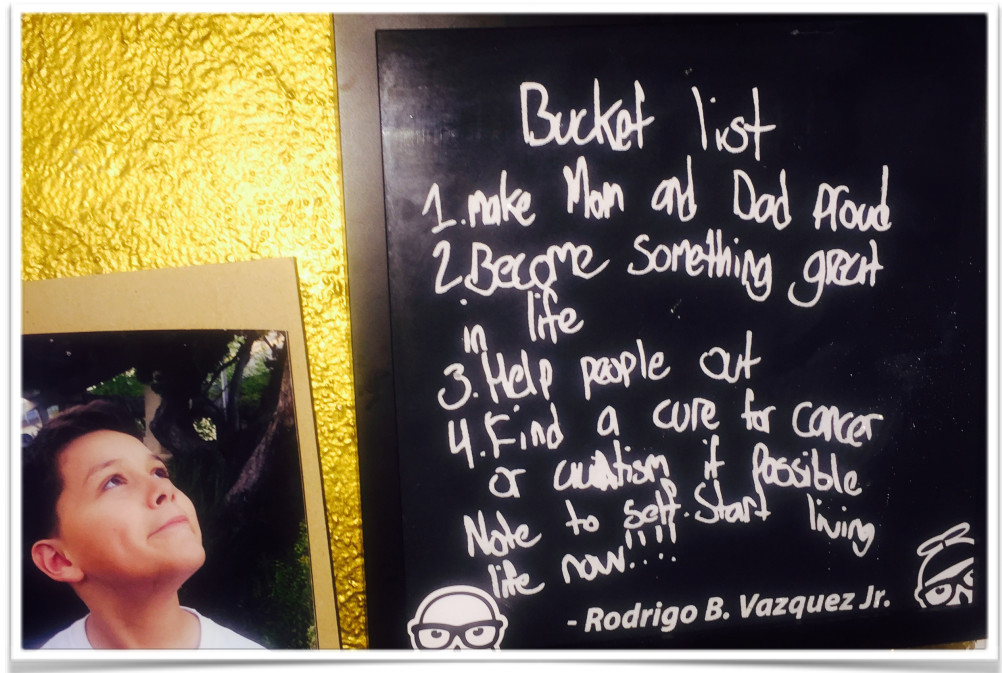 Bucket list
1. make Mom and Dad proud
2. Become something great
in life
3. Help people out
4. Find a cure for cancer
or autism if possible
Note to self. Start living
life now!!!!
- Rodrigo B. Vazquez Jr.